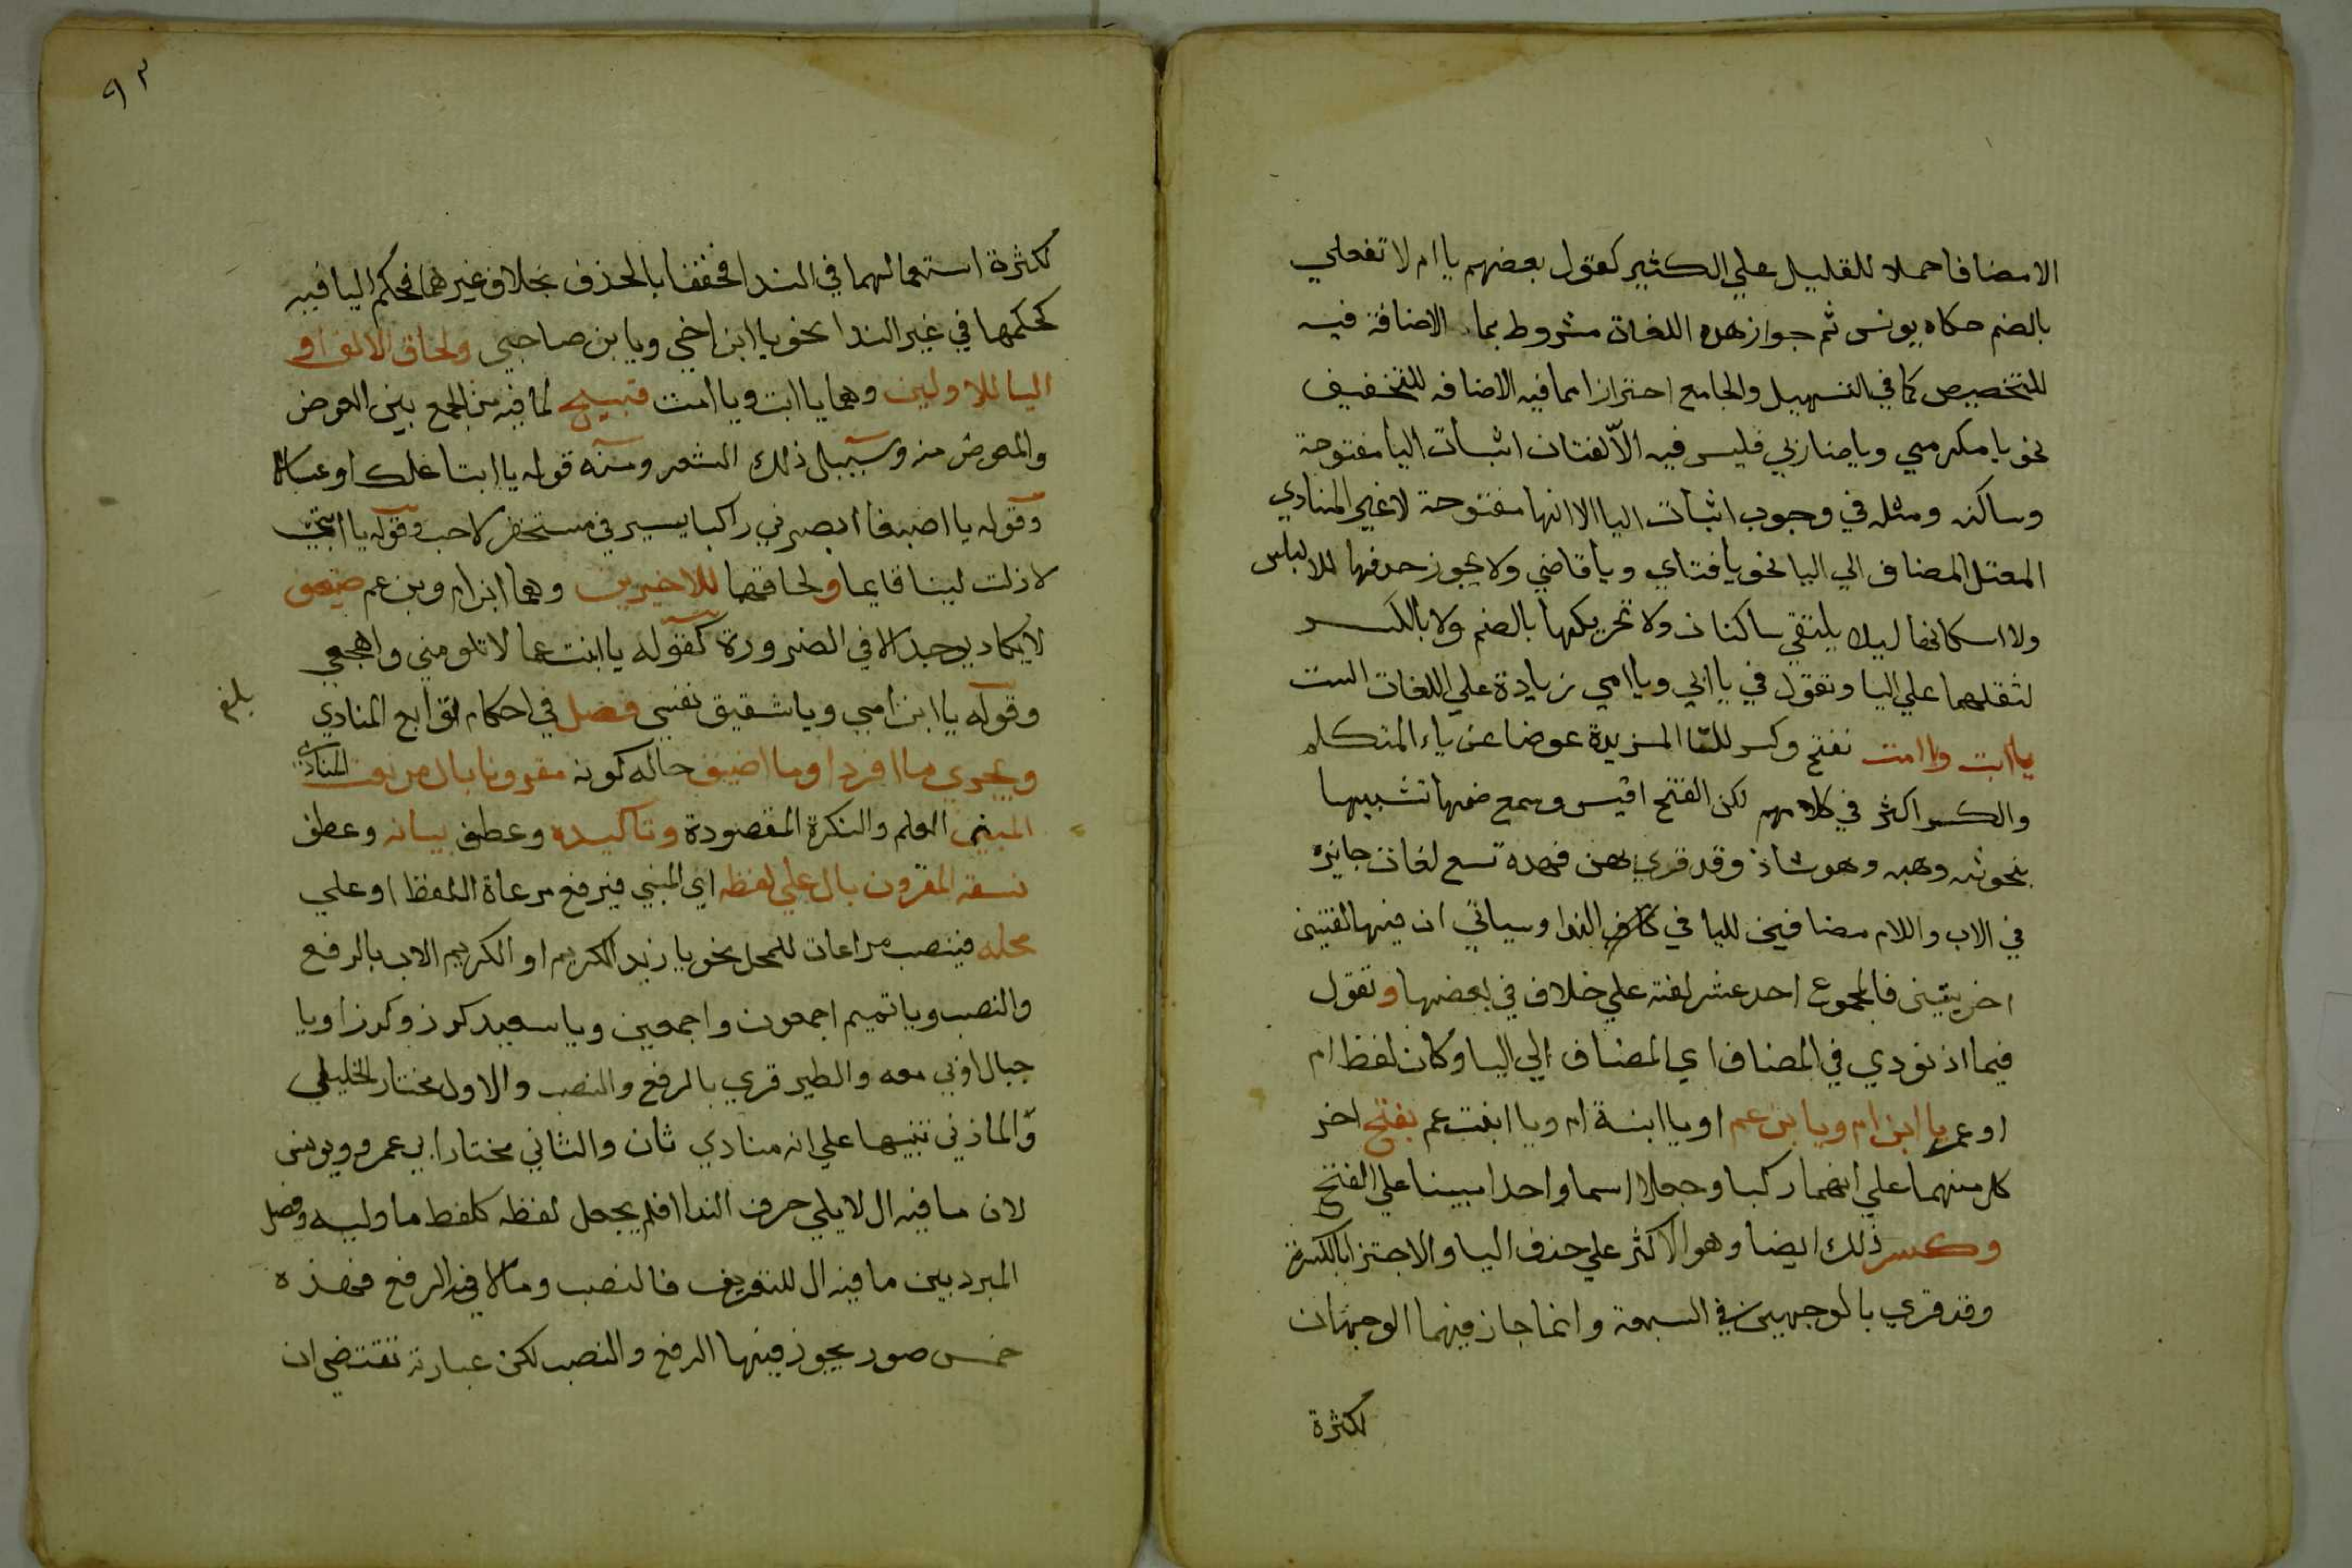 الامضافا حملا للقليل علي الكثير كقول بعضهم يا ام لا تفعلي
بالضم حكاه يونس ثم جواز هده اللغات مشروط بما الاضافة فيه
للتخصيص كما في التسهيل والجامع احترازا مما فيه الاضافه للتخفيف
نحو يا مكرمي ويا ضاربي فليس فيه الا لغتان اثبات اليا مفتوحة
وساكنه ومثله في وجوب اثبات اليا الا انها مفتوحة لا غير المنادي
المعتل المضاف الي اليا نحو يا فتاي ويا قاضي ولا يجوز حدفها للالباس
ولا اسكانها ليلا يلتقي ساكنان ولا تحريكها بالضم ولا بالكسر
لثقلهما علي اليا وتقول في يا ابي ويا امي زيادة علي اللغات الست
يا ابت وا امت بفتح وكسر للتا المزيدة عوضا عن ياء المتكلم
والكسر اكثر في كلامهم لكن الفتح اقيس وسمع ضمها تشبيها
بنحو ثبه وهبه وهو شاذ وقد قري بهن فهده تسع لغات جايزه
في الاب واللام مضافين لليا في الندا وسياتي ان فيها لغتين
اخريتين فالمجموع احد عشر لغة علي خلاف في بعضها وتقول
فيما اذ نودي في المضاف اي المضاف الي اليا وكان لفظ ام
او عم يا ابن ام ويا بن عم او يا ابنة ام ويا ابنت عم بفتح اخر
كل منهما علي انهما ركبا وجعلا اسما واحدا مبينا علي الفتح
وكسر ذلك ايضا وهو الاكثر علي حذف اليا والاجتزا بالكسرة
وقد قري بالوجهين في السبعة وانما جاز فيهما الوجهان
لكثرة
٩٢
لكثرة استعمالهما في الندا فخففا بالحذف بخلاف غيرهما فحكم اليا فيه
كحكمها في غير الندا نحو يا ابن اخي ويا بن صاحبي ولحاق الالف او
اليا للاولين وهما يا ابت ويا امت قبيح لما فيه من الجمع بين العوض
والمعوض منه وسبيل ذلك الشعر ومنه قوله يا ابتا علك او عساك
وقوله يا امتا ابصرني راكب يسير في مسحنفر لاحب وقوله يا ابتي
لا زلت لينا قايما ولحاقها للاخيرين وهما ابن ام وبن عم ضعيف
لا يكاد يوجد الا في الضرورة كقوله يا ابنت عما لا تلومي واهجعي
وقوله يا ابن امي ويا شقيق نفسي فصل في احكام توابع المنادي
بلغ
ويجري ما افرد او ما اضيف حاله كونه مقرونا بال من نعت المنادي
المبني العلم والنكرة المقصودة وتاكيده وعطف بيانه وعطف
نسقه المقرون بال علي لفظه اي المبني فيرفع مرعاة اللفظ او علي
محله فينصب مراعات للمحل نحو يا زيد الكريم او الكريم الاب بالرفع
والنصب ويا تميم اجمعون واجمعين ويا سعيد كرز وكرزا ويا
جبال اوبي معه والطير قري بالرفع والنصب والاول مختار الخليلي
والمازني تنبيها علي انه منادي ثان والثاني مختار ابي عمرو ويونس
لان ما فيه ال لا يلي حرف الندا فلم يجعل لفظه كلفظ ما وليه وفصل
المبرد بين ما فيه ال للتعريف فالنصب وما لا فيه الرفع فهذه
خمس صور يجوز فيها الرفع والنصب لكن عبارته تقتضي ان